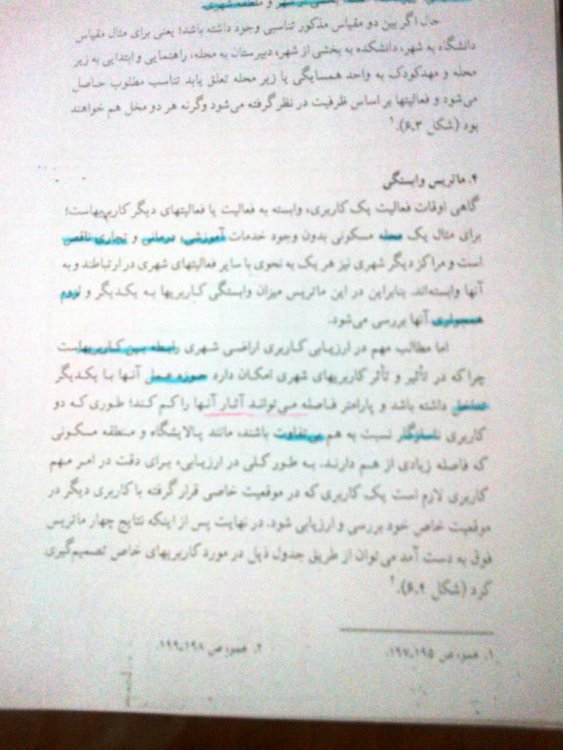 حال اگر بین دو مقیاس مذکور تناسبی وجود داشته باشد؛ یعنی برای مثال مقیاس
دانشگاه به شهر، دانشکده به بخشی از شهر، دبیرستان به محله، راهنمایی و ابتدایی به زیر
محله و مهدکودک به واحد همسایگی یا زیر محله تعلق یابد تناسب مطلوب حاصل
می‌شود و فعالیتها بر اساس ظرفیت در نظر گرفته می‌شود وگرنه هر دو مخل هم خواهند
بود (شکل ۶.۳).¹
۴. ماتریس وابستگی
گاهی اوقات فعالیت یک کاربری، وابسته به فعالیت یا فعالیتهای دیگر کاربریهاست؛
برای مثال یک محله مسکونی بدون وجود خدمات آموزشی، درمانی و تجاری ناقص
است و مراکز دیگر شهری نیز هر یک به نحوی با سایر فعالیتهای شهری در ارتباطند و به
آنها وابسته‌اند. بنابراین در این ماتریس میزان وابستگی کاربریها به یکدیگر و لزوم
همجواری آنها بررسی می‌شود.
اما مطالب مهم در ارزیابی کاربری اراضی شهری رابطه بین کاربریهاست
چرا که در تأثیر و تأثر کاربریهای شهری امکان دارد حوزه عمل آنها با یکدیگر
تداخل داشته باشد و پارامتر فاصله می‌تواند آثار آنها را کم کند؛ طوری که دو
کاربری ناسازگار نسبت به هم بی‌تفاوت باشند، مانند پالایشگاه و منطقه مسکونی
که فاصله زیادی از هم دارند. به طور کلی در ارزیابی، برای دقت در امر مهم
کاربری لازم است یک کاربری که در موقعیت خاصی قرار گرفته با کاربری دیگر در
موقعیت خاص خود بررسی و ارزیابی شود. در نهایت پس از اینکه نتایج چهار ماتریس
فوق به دست آمد می‌توان از طریق جدول ذیل در مورد کاربریهای خاص تصمیم‌گیری
کرد (شکل ۶.۴).²
۱. همو، ص ۱۹۵-۱۹۷.
۲. همو، ص ۱۹۸-۱۹۹.